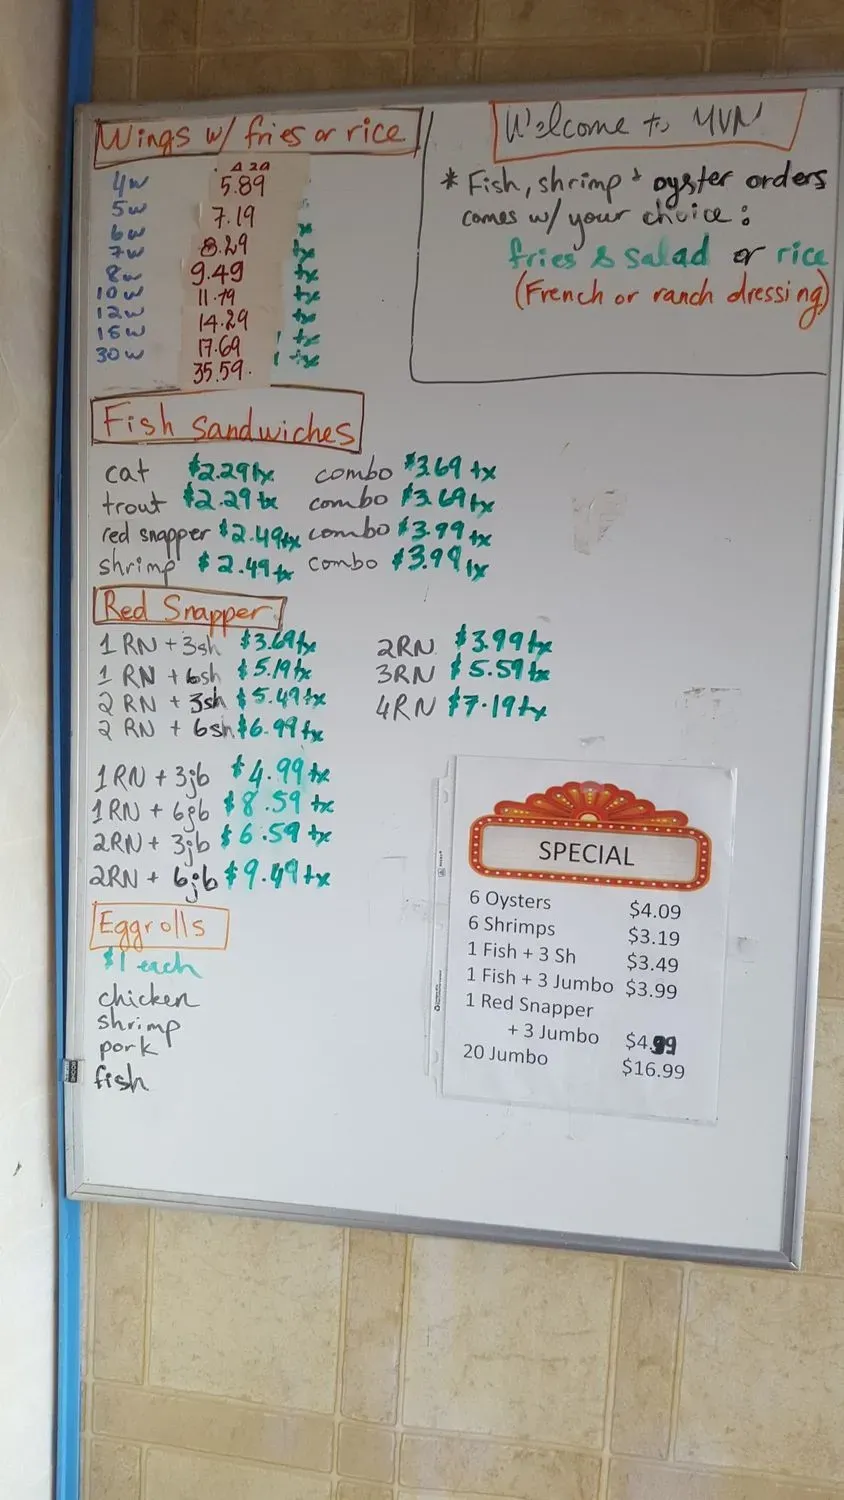 Wings w/ fries or rice
4w
5w 5.89
6w 7.19
7w 8.29 tx
8w 9.49 tx
10w 11.79 tx
12w 14.29 tx
15w 17.69 tx
30w 35.59 tx
Welcome to MVN
* Fish, shrimp + oyster orders
comes w/ your choice:
fries & salad or rice
(French or ranch dressing)
Fish Sandwiches
cat $2.29tx combo $3.69 tx
trout $2.29 tx combo $3.69 tx
red snapper $2.49tx combo $3.99 tx
shrimp $2.49tx combo $3.99 tx
Red Snapper
1 RN + 3sh $3.69tx 2RN $3.99tx
1 RN + 6sh $5.19tx 3RN $5.59tx
2 RN + 3sh $5.49tx 4RN $7.19tx
2 RN + 6sh $6.99tx
1RN + 3jb $4.99 tx
1RN + 6jb $8.59 tx
2RN + 3jb $6.59 tx
2RN + 6jb $9.49 tx
Eggrolls
$1 each
chicken
shrimp
pork
fish
SPECIAL
6 Oysters $4.09
6 Shrimps $3.19
1 Fish + 3 Sh $3.49
1 Fish + 3 Jumbo $3.99
1 Red Snapper
+ 3 Jumbo $4.99
20 Jumbo $16.99